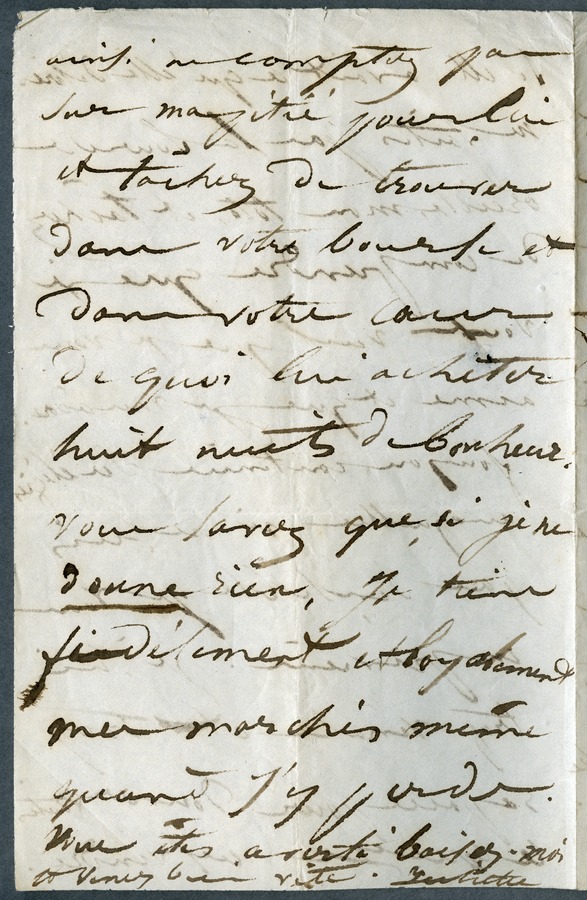 ainsi ne comptez pas
sur ma pitié pour lui
et tâchez de trouver
dans votre bourse et
dans votre cœur
de quoi lui acheter
huit nuits de bonheur.
vous savez que, si je ne
donne rien, je tiens
fidèlement et loyalement
mes marchés même
quand j'y perds.
Vous êtes averti baisez-moi
et venez bien vite. Juliette